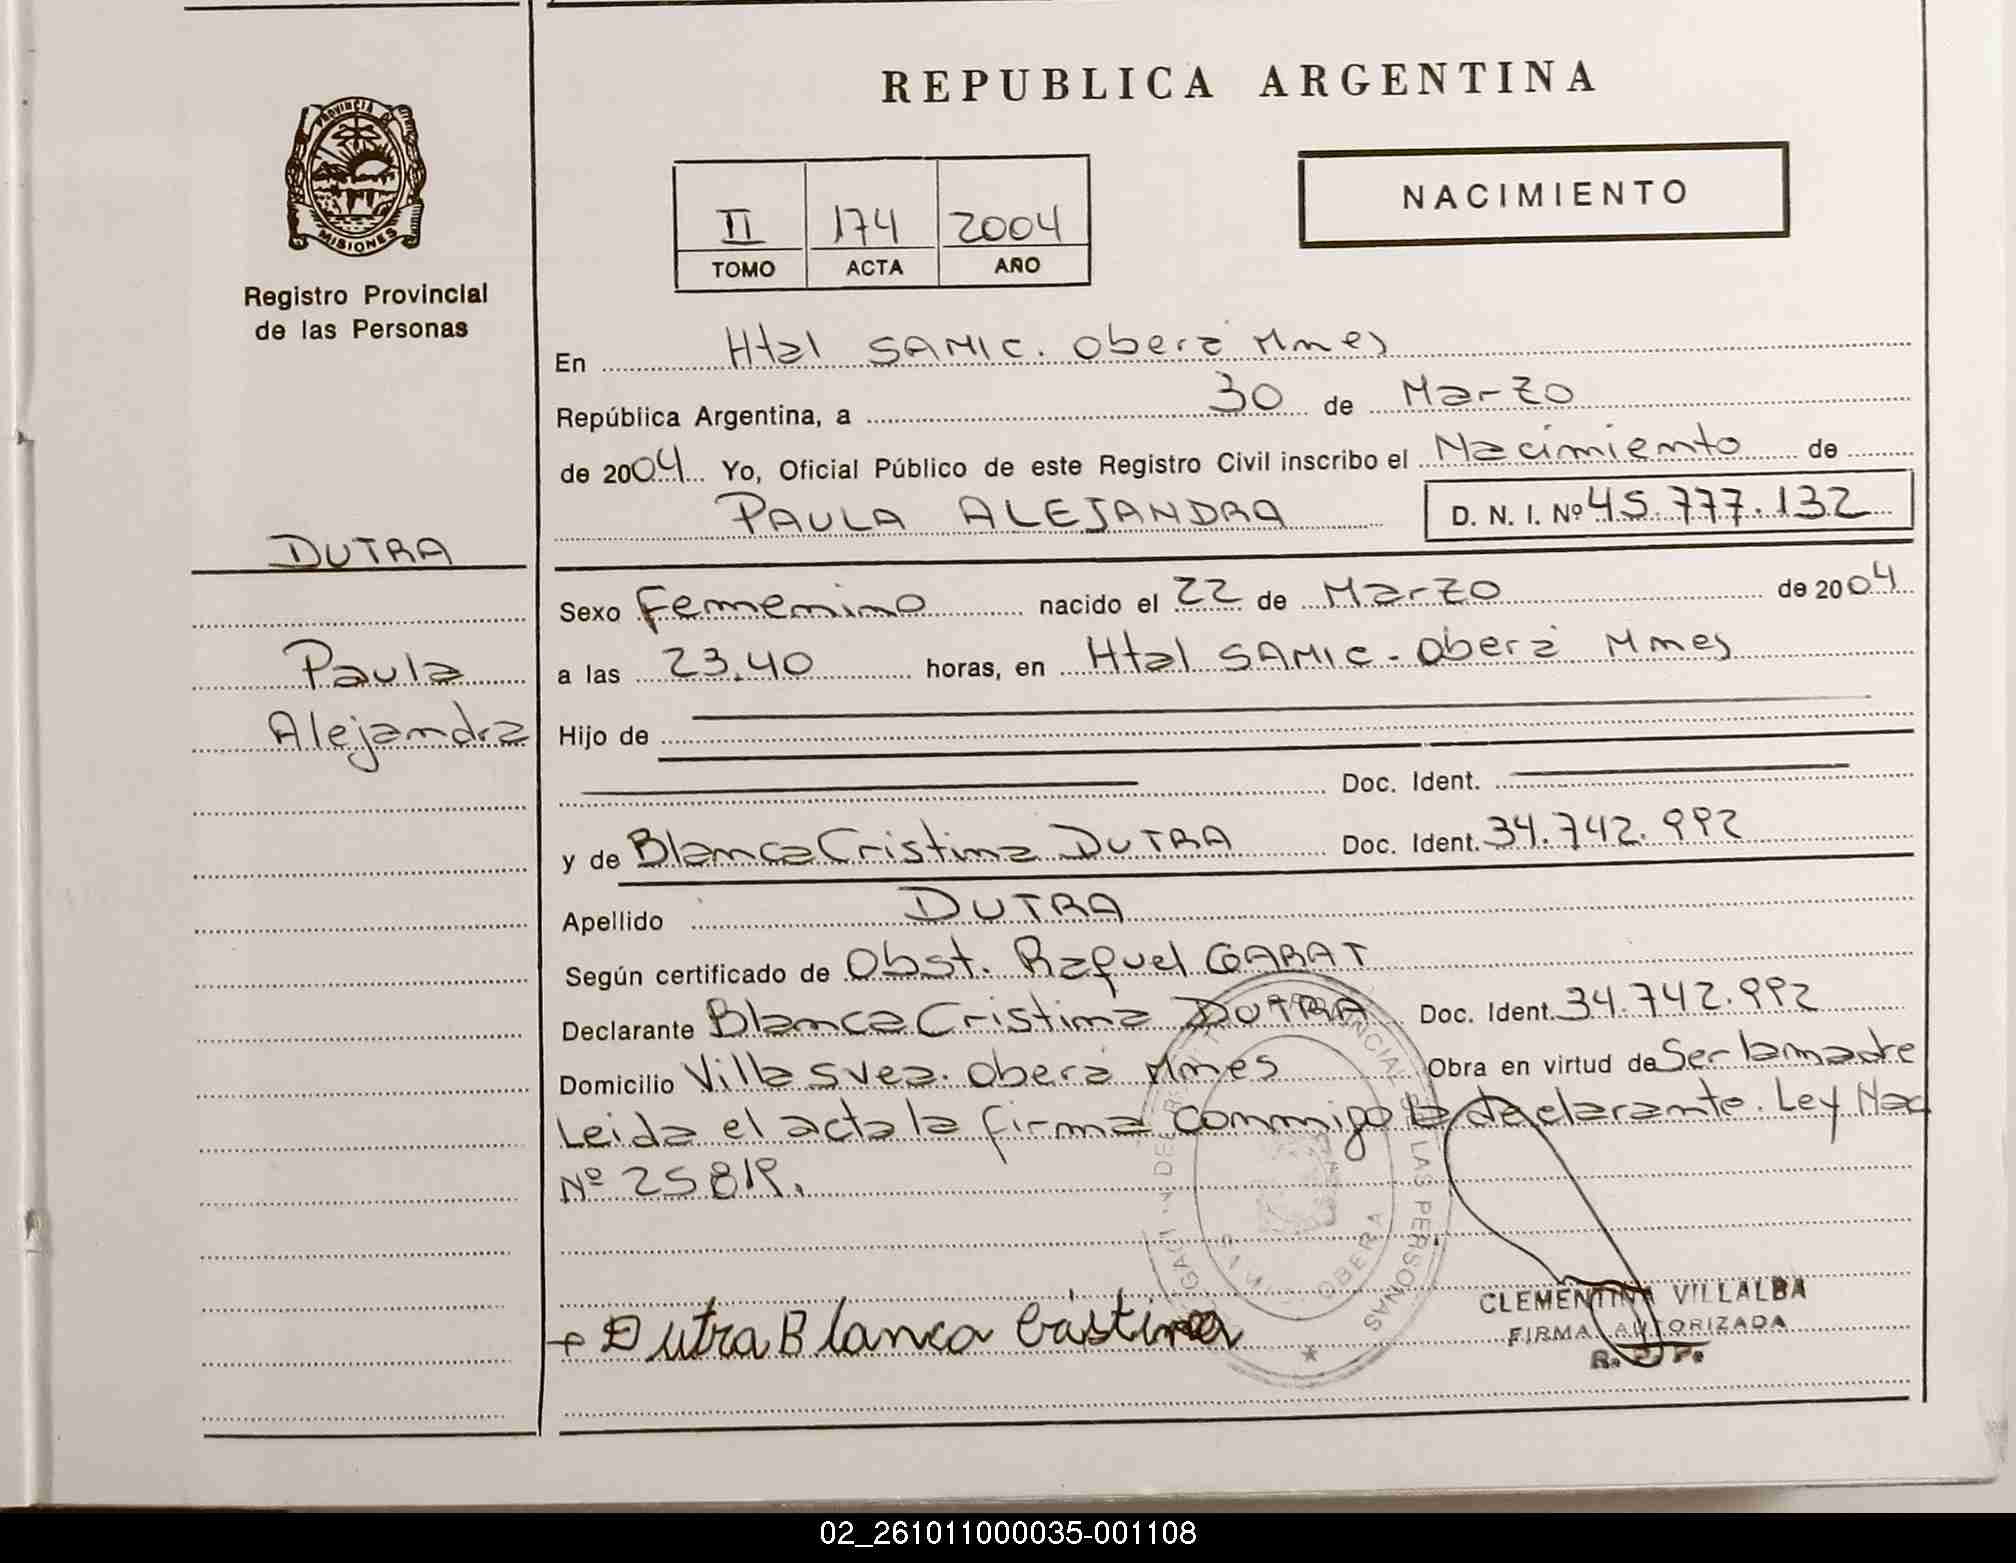 REPUBLICA ARGENTINA
PROVINCIA DE
MISIONES
Registro Provincial
de las Personas
II 174 2004
TOMO ACTA AÑO
NACIMIENTO
En Htal SAMIC. Oberá Mnes
República Argentina, a 30 de Marzo
de 2004 Yo, Oficial Público de este Registro Civil inscribo el Nacimiento de
PAULA ALEJANDRA D. N. I. Nº 45.777.132
DUTRA
Paula
Alejandra
Sexo Femenino nacido el 22 de Marzo de 2004
a las 23.40 horas, en Htal SAMIC - Oberá Mnes
Hijo de
Doc. Ident.
y de Blanca Cristina DUTRA Doc. Ident. 34.742.992
Apellido DUTRA
Según certificado de Obst. Raquel GARAT
Declarante Blanca Cristina DUTRA Doc. Ident. 34.742.992
Domicilio Villa Svea. Oberá Mnes Obra en virtud de Ser la madre
Leida el acta la firma conmigo la declarante. Ley Nac
Nº 25819.
LAS PERSONAS
OBERA
+ Dutra Blanca Cristina
CLEMENTINA VILLALBA
FIRMA AUTORIZADA
R. P. P.
02_261011000035-001108